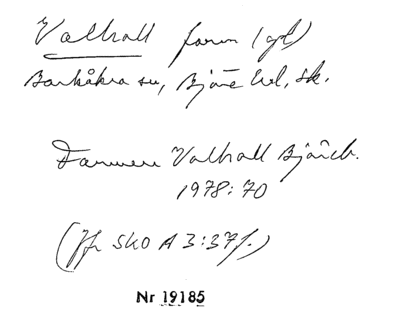 Valhall farm (gt)
Barkåkra sn, Bjäre hd, Sk.
Farmen Valhall Bjäreb.
1978:70
(Jfr SKO A 3:37f.)
Nr 19185